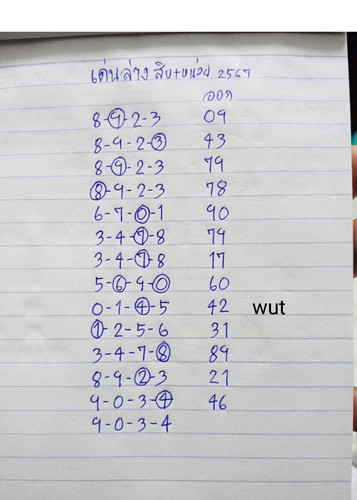 เด่นล่าง สิบ+หน่วย 2567
ออก
8-9-2-3 09
8-9-2-3 43
8-9-2-3 79
8-9-2-3 78
6-7-0-1 90
3-4-7-8 79
3-4-7-8 17
5-6-9-0 60
0-1-4-5 42 wut
1-2-5-6 31
3-4-7-8 89
8-9-2-3 21
9-0-3-4 46
9-0-3-4